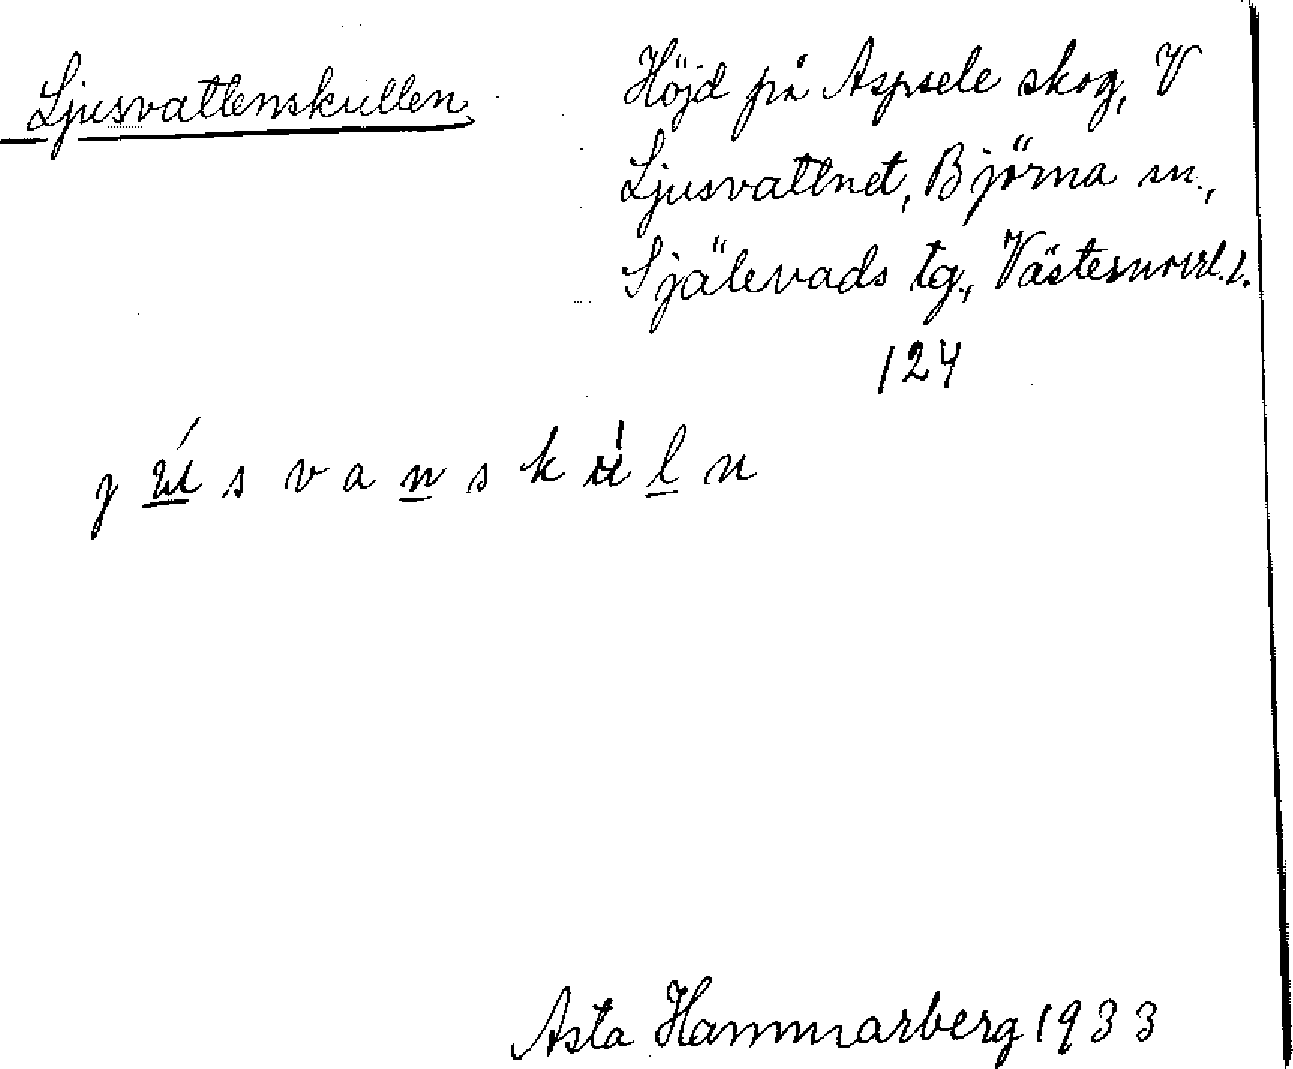 Ljusvattenskullen
Höjd på Aspsele skog, V
Ljusvattnet, Björna sn.,
Själevads tg., Västernorrl. l.
124
j ú s v a n s k ù l n
Asta Hammarberg 1933